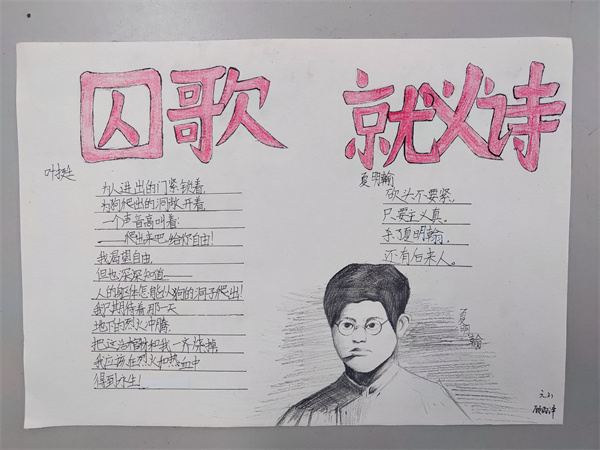 囚歌
叶挺
为人进出的门紧锁着,
为狗爬出的洞敞开着,
一个声音高叫着:
——爬出来吧,给你自由!
我渴望自由,
但也深深知道——
人的躯体怎能从狗的洞子爬出!
我只期待着那一天
地下的烈火冲腾,
把这活棺材和我一齐烧掉,
我应该在烈火和热血中
得到永生!
就义诗
夏明翰
砍头不要紧,
只要主义真。
杀了夏明翰,
还有后来人。
夏明翰